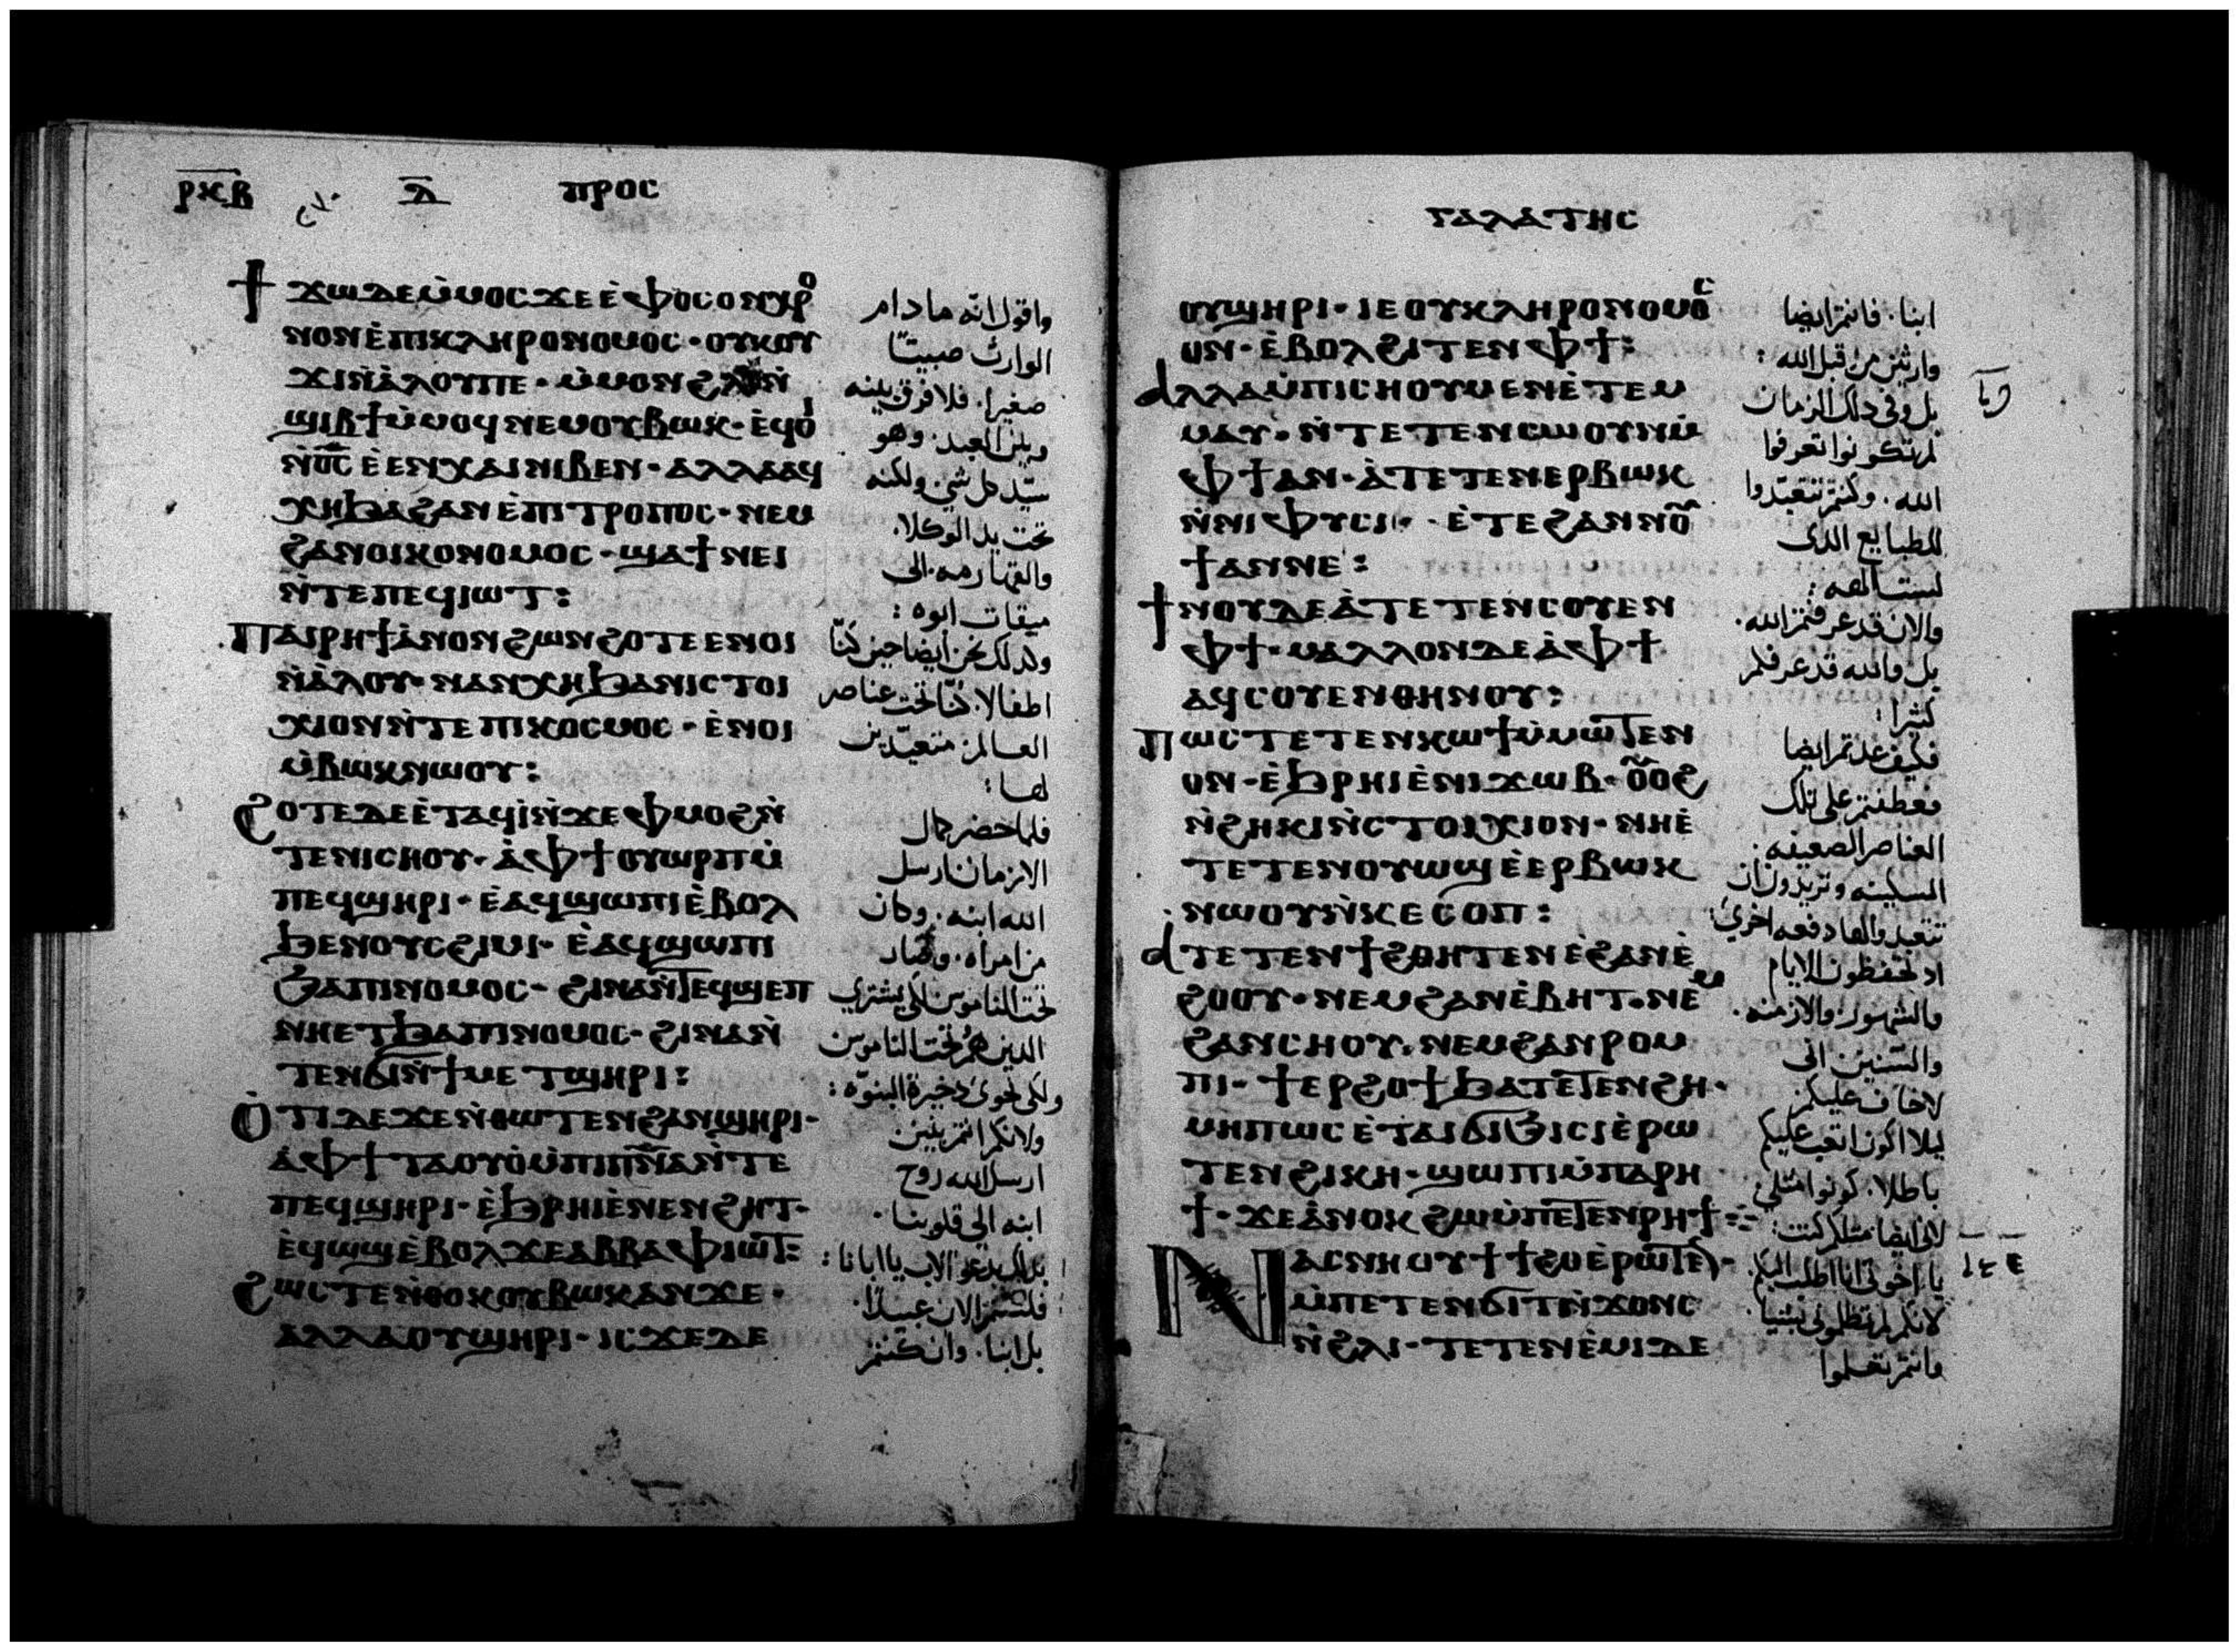 ⲣⲕⲃ ⲇ ⲡⲣⲟⲥ
ϯϫⲱ ⲇⲉ ⲙ̀ⲙⲟⲥ ϫⲉ ⲉ̀ⲫⲟⲥⲟⲛ ⲭⲣⲟ
ⲛⲟⲛ ⲉ̀ⲡⲓⲕⲗⲏⲣⲟⲛⲟⲙⲟⲥ · ⲟⲩⲕⲟⲩ
ϫⲓ ⲛ̀ⲁ̀ⲗⲟⲩ ⲡⲉ · ⲙ̀ⲙⲟⲛ ϩⲗⲓ ⲛ̀
ϣⲓⲃϯ ⲙ̀ⲙⲟϥ ⲛⲉⲙ ⲟⲩⲃⲱⲕ · ⲉ̀ϥⲟⲓ
ⲛ̀ⲟ̅ⲥ̅ ⲉ̀ⲉⲛⲭⲁⲓ ⲛⲓⲃⲉⲛ · ⲁⲗⲗⲁ ⲁϥ
ⲭⲏ ϧⲁ ϩⲁⲛⲉ̀ⲡⲓⲧⲣⲟⲡⲟⲥ · ⲛⲉⲙ
ϩⲁⲛⲟⲓⲕⲟⲛⲟⲙⲟⲥ · ϣⲁ ϯⲛⲉⲓ
ⲛ̀ⲧⲉ ⲡⲉϥⲓⲱⲧ :
ⲡⲁⲓⲣⲏϯ ⲁ̀ⲛⲟⲛ ϩⲱⲛ ϩⲟⲧⲉ ⲉⲛⲟⲓ
ⲛ̀ⲁ̀ⲗⲟⲩ · ⲛⲁⲛⲭⲏ ϧⲁ ⲛⲓⲥⲧⲟⲓ
ⲭⲓⲟⲛ ⲛ̀ⲧⲉ ⲡⲓⲕⲟⲥⲙⲟⲥ · ⲉ̀ⲛⲟⲓ
ⲙ̀ⲃⲱⲕ ⲛⲱⲟⲩ :
ϩⲟⲧⲉ ⲇⲉ ⲉ̀ⲧⲁϥⲓ̀ ⲛ̀ϫⲉ ⲫⲙⲟϩ ⲛ̀
ⲧⲉ ⲛⲓⲥⲏⲟⲩ · ⲁ̀ ⲫϯ ⲟⲩⲱⲣⲡ ⲙ̀
ⲡⲉϥϣⲏⲣⲓ · ⲉ̀ⲁϥϣⲱⲡⲓ ⲉ̀ⲃⲟⲗ
ϧⲉⲛ ⲟⲩⲥϩⲓⲙⲓ · ⲉ̀ⲁϥϣⲱⲡⲓ
ϧⲁ ⲡⲓⲛⲟⲙⲟⲥ · ϩⲓⲛⲁ ⲛ̀ⲧⲉϥϣⲉⲡ
ⲛⲏ ⲉⲧ ϧⲁ ⲡⲓⲛⲟⲙⲟⲥ · ϩⲓⲛⲁ ⲛ̀
ⲧⲉⲛϭⲓ ⲛ̀ϯⲙⲉⲧϣⲏⲣⲓ :
ⲟ̀ⲧⲓ ⲇⲉ ϫⲉ ⲛ̀ⲑⲱⲧⲉⲛ ϩⲁⲛϣⲏⲣⲓ ·
ⲁ̀ ⲫϯ ⲧⲁⲟⲩⲟ̀ ⲙ̀ⲡⲓⲡ̅ⲛ̅ⲁ̅ ⲛ̀ⲧⲉ
ⲡⲉϥϣⲏⲣⲓ · ⲉ̀ϧⲣⲏⲓ ⲉ̀ⲛⲉⲛϩⲏⲧ ·
ⲉ̀ϥⲱϣ ⲉ̀ⲃⲟⲗ ϫⲉ ⲁⲃⲃⲁ ⲫⲓⲱⲧ :
ϩⲱⲥⲧⲉ ⲛ̀ⲑⲟⲕ ⲟⲩⲃⲱⲕ ⲁⲛ ϫⲉ ·
ⲁⲗⲗⲁ ⲟⲩϣⲏⲣⲓ · ⲓⲥϫⲉ ⲇⲉ
واقول انه مادام
الوارث صبيتا
صغيرا. فلا فرق بينه
وبين العبد. وهو
سيد كل شي. ولكنه
تحت يد الوكلا.
والقهارمه. الى
ميقات ابوه :
وكذلك نحن ايضا حين كنا
اطفالا. كنا تحت عناصر
العالم. متعبدين
لها :
فلما حضر كمال
الازمان. ارسل
الله ابنه. وكان
من امراه. وصار
تحت الناموس. لكي يشتري
الذين هم تحت الناموس
ولكى نحوى ذخيرة البنوه :
ولانكم انتم بنين
ارسل الله روح
ابنه الى قلوبنا.
فلستم الان عبيدا.
بل ابنا. وان كنتم
ⲅⲁⲗⲁⲧⲏⲥ
ⲟⲩϣⲏⲣⲓ · ⲓⲉ ⲟⲩⲕⲗⲏⲣⲟⲛⲟⲙⲟⲥ
ⲟⲛ · ⲉ̀ⲃⲟⲗ ϩⲓⲧⲉⲛ ⲫϯ :
ⲁⲗⲗⲁ ⲙ̀ⲡⲓⲥⲏⲟⲩ ⲙⲉⲛ ⲉ̀ⲧⲉⲙ
ⲙⲁⲩ · ⲛ̀ⲧⲉⲧⲉⲛⲥⲱⲟⲩⲛ ⲙ̀
ⲫϯ ⲁⲛ · ⲁ̀ⲧⲉⲧⲉⲛⲉⲣⲃⲱⲕ
ⲛ̀ⲛⲓⲫⲩⲥⲓⲥ · ⲉ̀ⲧⲉ ϩⲁⲛⲛⲟⲩ
ϯ ⲁⲛ ⲛⲉ :
ϯⲛⲟⲩ ⲇⲉ ⲁ̀ⲧⲉⲧⲉⲛⲥⲟⲩⲉⲛ
ⲫϯ · ⲙⲁⲗⲗⲟⲛ ⲇⲉ ⲁ̀ ⲫϯ
ⲁϥⲥⲟⲩⲉⲛ ⲑⲏⲛⲟⲩ :
ⲡⲱⲥ ⲧⲉⲧⲉⲛⲕⲱϯ ⲙ̀ⲙⲱⲧⲉⲛ
ⲟⲛ · ⲉ̀ϧⲣⲏⲓ ⲉ̀ⲛⲓϫⲱⲃ · ⲟⲩⲟϩ
ⲛ̀ϩⲏⲕⲓ ⲛ̀ⲥⲧⲟⲓⲭⲓⲟⲛ · ⲛⲏ ⲉ̀
ⲧⲉⲧⲉⲛⲟⲩⲱϣ ⲉ̀ⲉⲣⲃⲱⲕ
ⲛⲱⲟⲩ ⲛ̀ⲕⲉⲥⲟⲡ :
ⲁⲧⲉⲧⲉⲛϯϩⲑⲏⲧⲉⲛ ⲉ̀ϩⲁⲛⲉ̀
ϩⲟⲟⲩ · ⲛⲉⲙ ϩⲁⲛⲉ̀ⲃⲏⲧ · ⲛⲉⲙ
ϩⲁⲛⲥⲏⲟⲩ · ⲛⲉⲙ ϩⲁⲛⲣⲟⲙ
ⲡⲓ · ϯⲉⲣϩⲟϯ ϧⲁⲧⲉⲧⲉⲛϩⲏ ·
ⲙⲏⲡⲱⲥ ⲉ̀ⲧⲁⲓϭⲓϧⲓⲥⲓ ⲉ̀ⲣⲱ
ⲧⲉⲛ ϩⲓⲕⲏ · ϣⲱⲡⲓ ⲙ̀ⲡⲁⲣⲏ
ϯ · ϫⲉ ⲁ̀ⲛⲟⲕ ϩⲱ ⲙ̀ⲡⲉⲧⲉⲛⲣⲏϯ :
ⲛⲁⲥⲛⲏⲟⲩ ϯϯϩⲟ ⲉ̀ⲣⲱⲧⲉⲛ ·
ⲙ̀ⲡⲉⲧⲉⲛϭⲓⲧ ⲛ̀ϫⲟⲛⲥ
ⲛ̀ϩⲗⲓ · ⲧⲉⲧⲉⲛⲉ̀ⲙⲓ ⲇⲉ
ابنا. فانتم ايضا
وارثين من قبل الله :
بل وفي ذلك الزمان
لم تكونوا تعرفوا
الله. وكنتم تتعبدوا
للطبايع الذى
ليست الهه :
والان قد عرفتم الله.
بل والله قد عرفكم
كثيرا :
فكيف عدتم ايضا
فعطفتم على تلك
العناصر الضعيفه.
المسكينه وتريدون ان
تتعبدوا لها دفعه اخرى :
اذ تحتفظون الايام
والشهور. والازمنه.
والسنين. انى
لاخاف عليكم
ليلا اكون اتعب عليكم
باطلا. كونوا مثلى.
لانى ايضا مثلكم كنت :
يا اخوتى انا اطلب اليكم.
لانكم لم تظلمونى بشيا
وانتم تعلموا